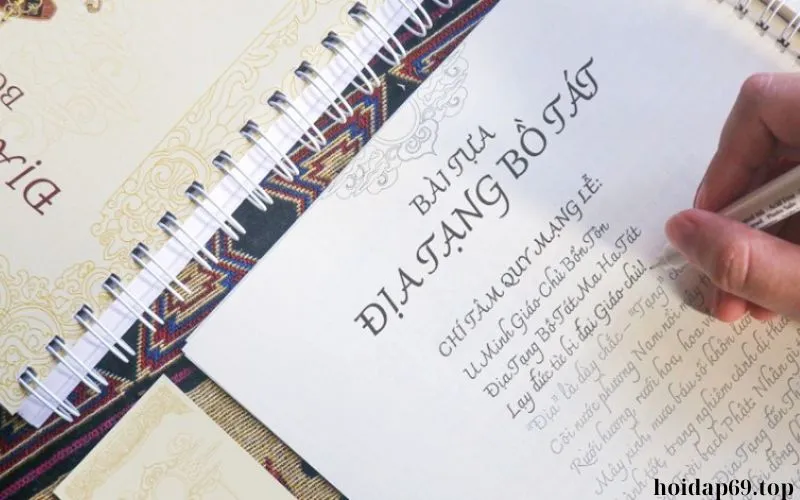 ĐỊA
BÀI TỰA
ĐỊA TẠNG BỒ TÁT
CHÍ TÂM QUY MẠNG LỄ:
U Minh Giáo Chủ Bổn Tôn
Địa Tạng Bồ Tát Ma Ha Tát
Lạy đức từ bi đại Giáo chủ!
"Địa" là dày chắc – "Tạng"
Cõi nước phương Nam nổi mây
Rưới hương, rưới hoa, hoa
Mây xinh, mưa báu số khôn
lành tốt, trang nghiêm cảnh dị
Trời bạch Phật: Nhân gì
Địa Tạng đến
hoidap69.top